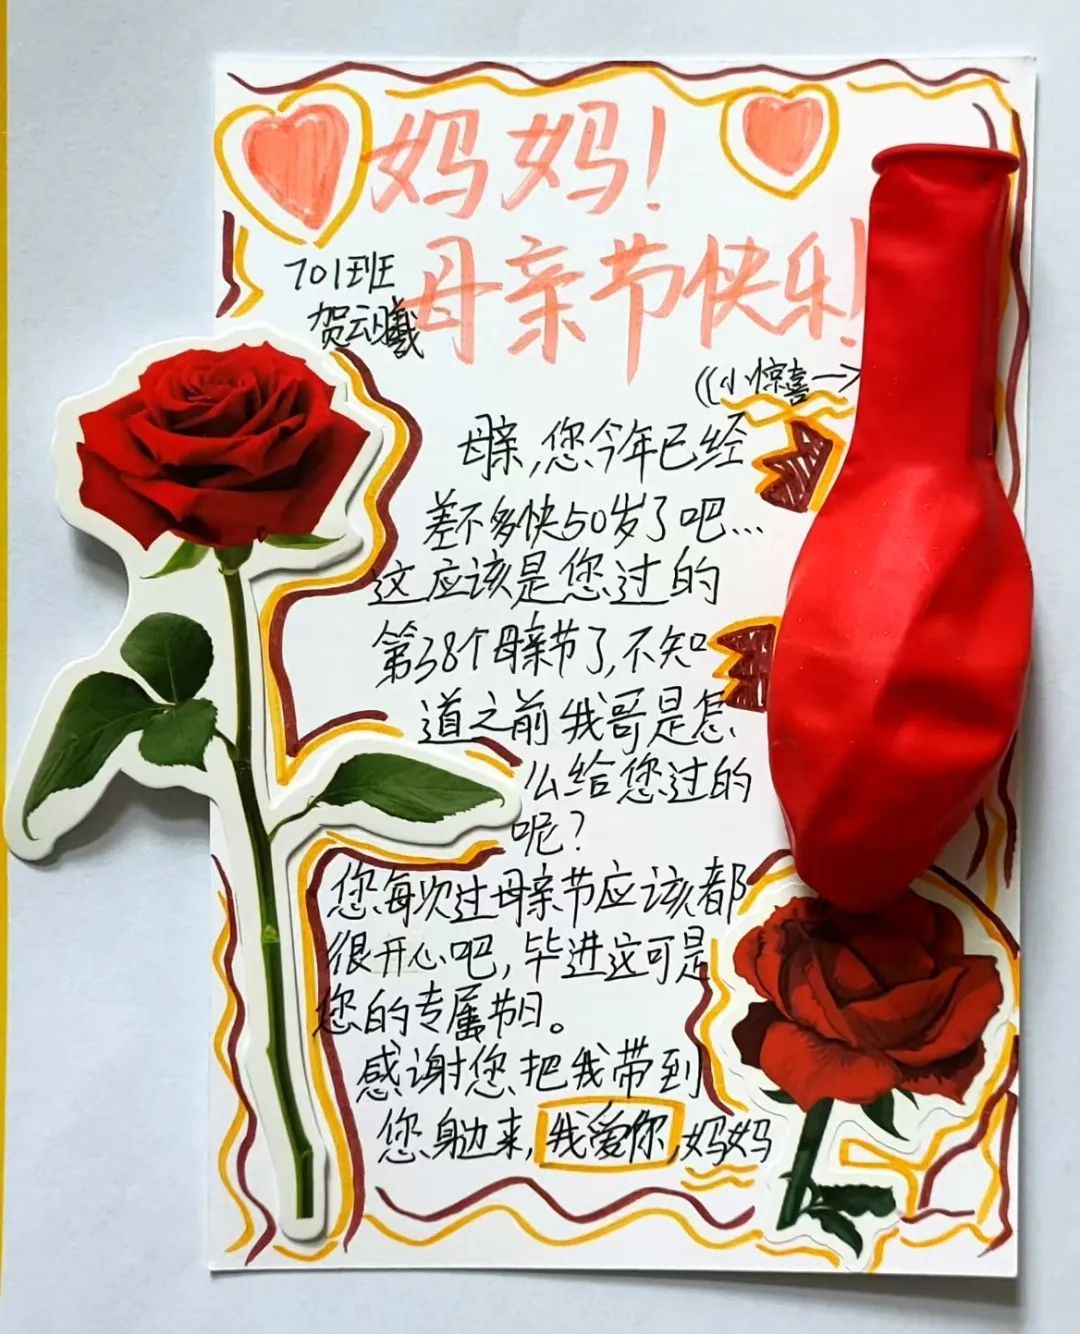 妈妈!
母亲节快乐!
701班
贺云曦
((小惊喜→
母亲,您今年已经
差不多快50岁了吧...
这应该是您过的
第38个母亲节了,不知
道之前我哥是怎
么给您过的
呢?
您每次过母亲节应该都
很开心吧,毕进这可是
您的专属节日。
感谢您把我带到
您身边来,我爱你,妈妈